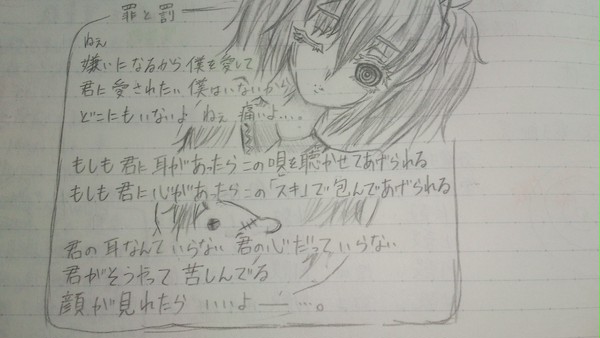 罪と罰
ねぇ
嫌いになるから 僕を愛して
君に愛されたい 僕はいないから
どこにもいないよ ねぇ 痛いよ…。
もしも 君に 耳があったら この 唄を聴かせてあげられる
もしも 君に 心があったら この「スキ」で 包んであげられる
君の 耳なんて いらない 君の 心だって いらない
君が そうやって 苦しんでる
顔が 見れたら いいよ ―…。